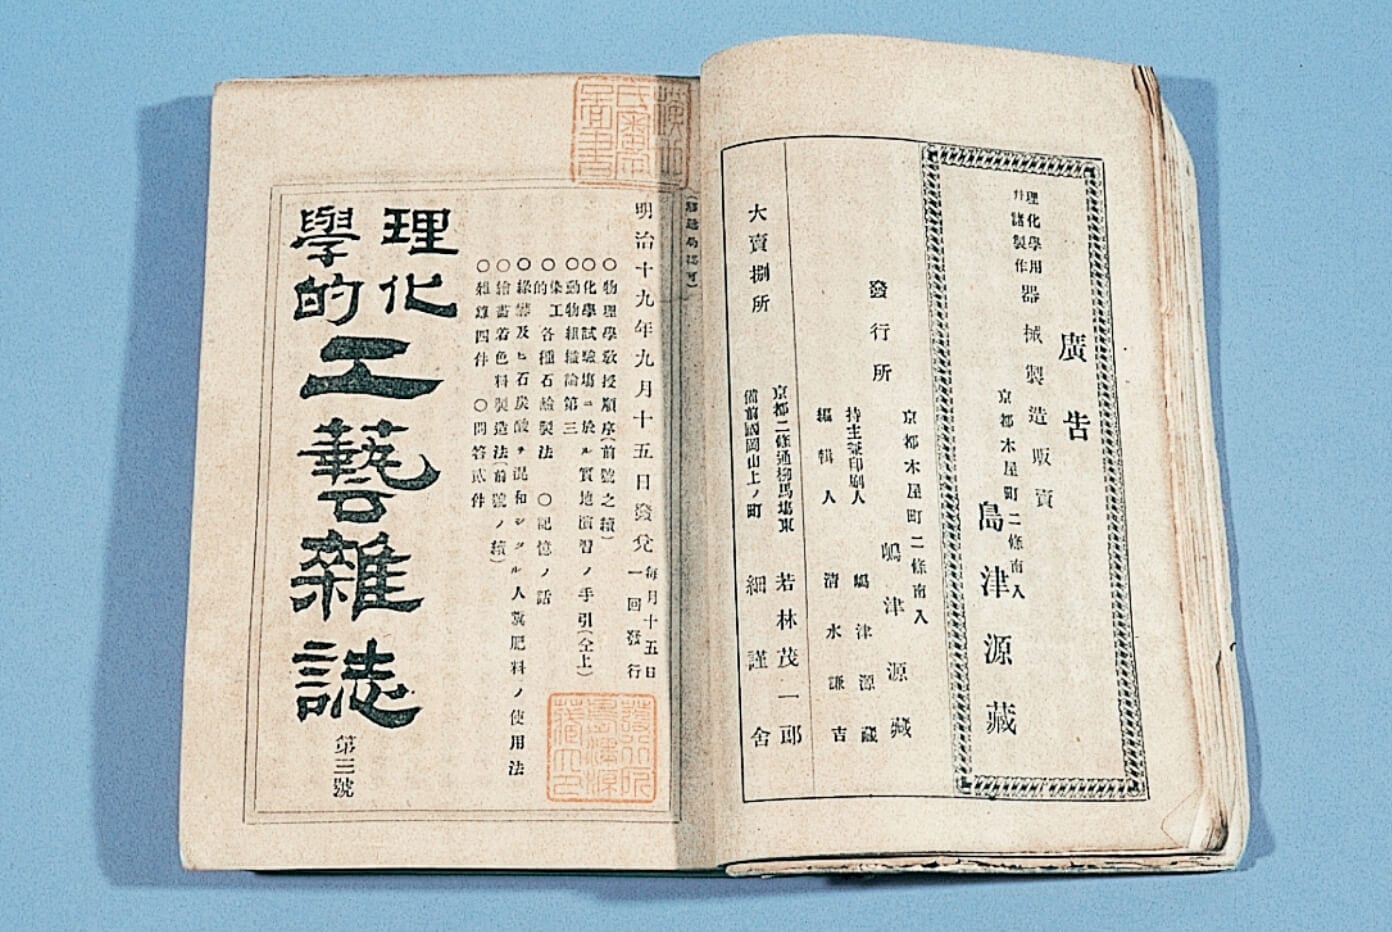 廣告
理化學用
幷諸製作
器械製造販賣
京都木屋町二條南入
島津源藏
發行所
京都木屋町二條南入
嶋津源藏
持主兼印刷人
嶋津源藏
編輯人
清水謙吉
大賣捌所
京都二條通柳馬塲東
若林茂一郎
備前國岡山上ノ町
細謹舍
明治十九年九月十五日發兌
每月十五日
一回發行
○物理學敎授順序(前號之續)
○化學試驗塲ニ於ル實地演習ノ手引(全上)
○動物組織論第三
○染工的各種石鹼製法 ○記憶ノ話
○綠礬及ヒ石炭酸ヲ混和シタル人糞肥料ノ使用法
○繪畵着色料製造法(前號ノ續)
○雜錄四件 ○問答貳件
理化
學的
工藝雜誌
第三號